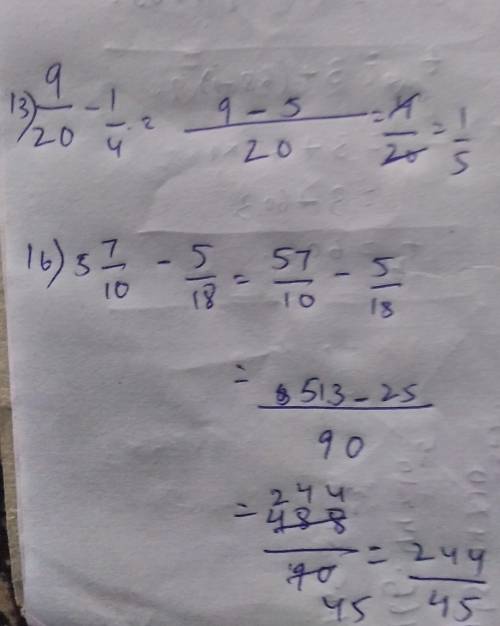 13) 9/20 - 1/4 = 9 - 5/20 = 4/20 = 1/5
16) 5 7/10 - 5/18 = 57/10 - 5/18
= 513 - 25/90
= 488/90 244/45 = 244/45